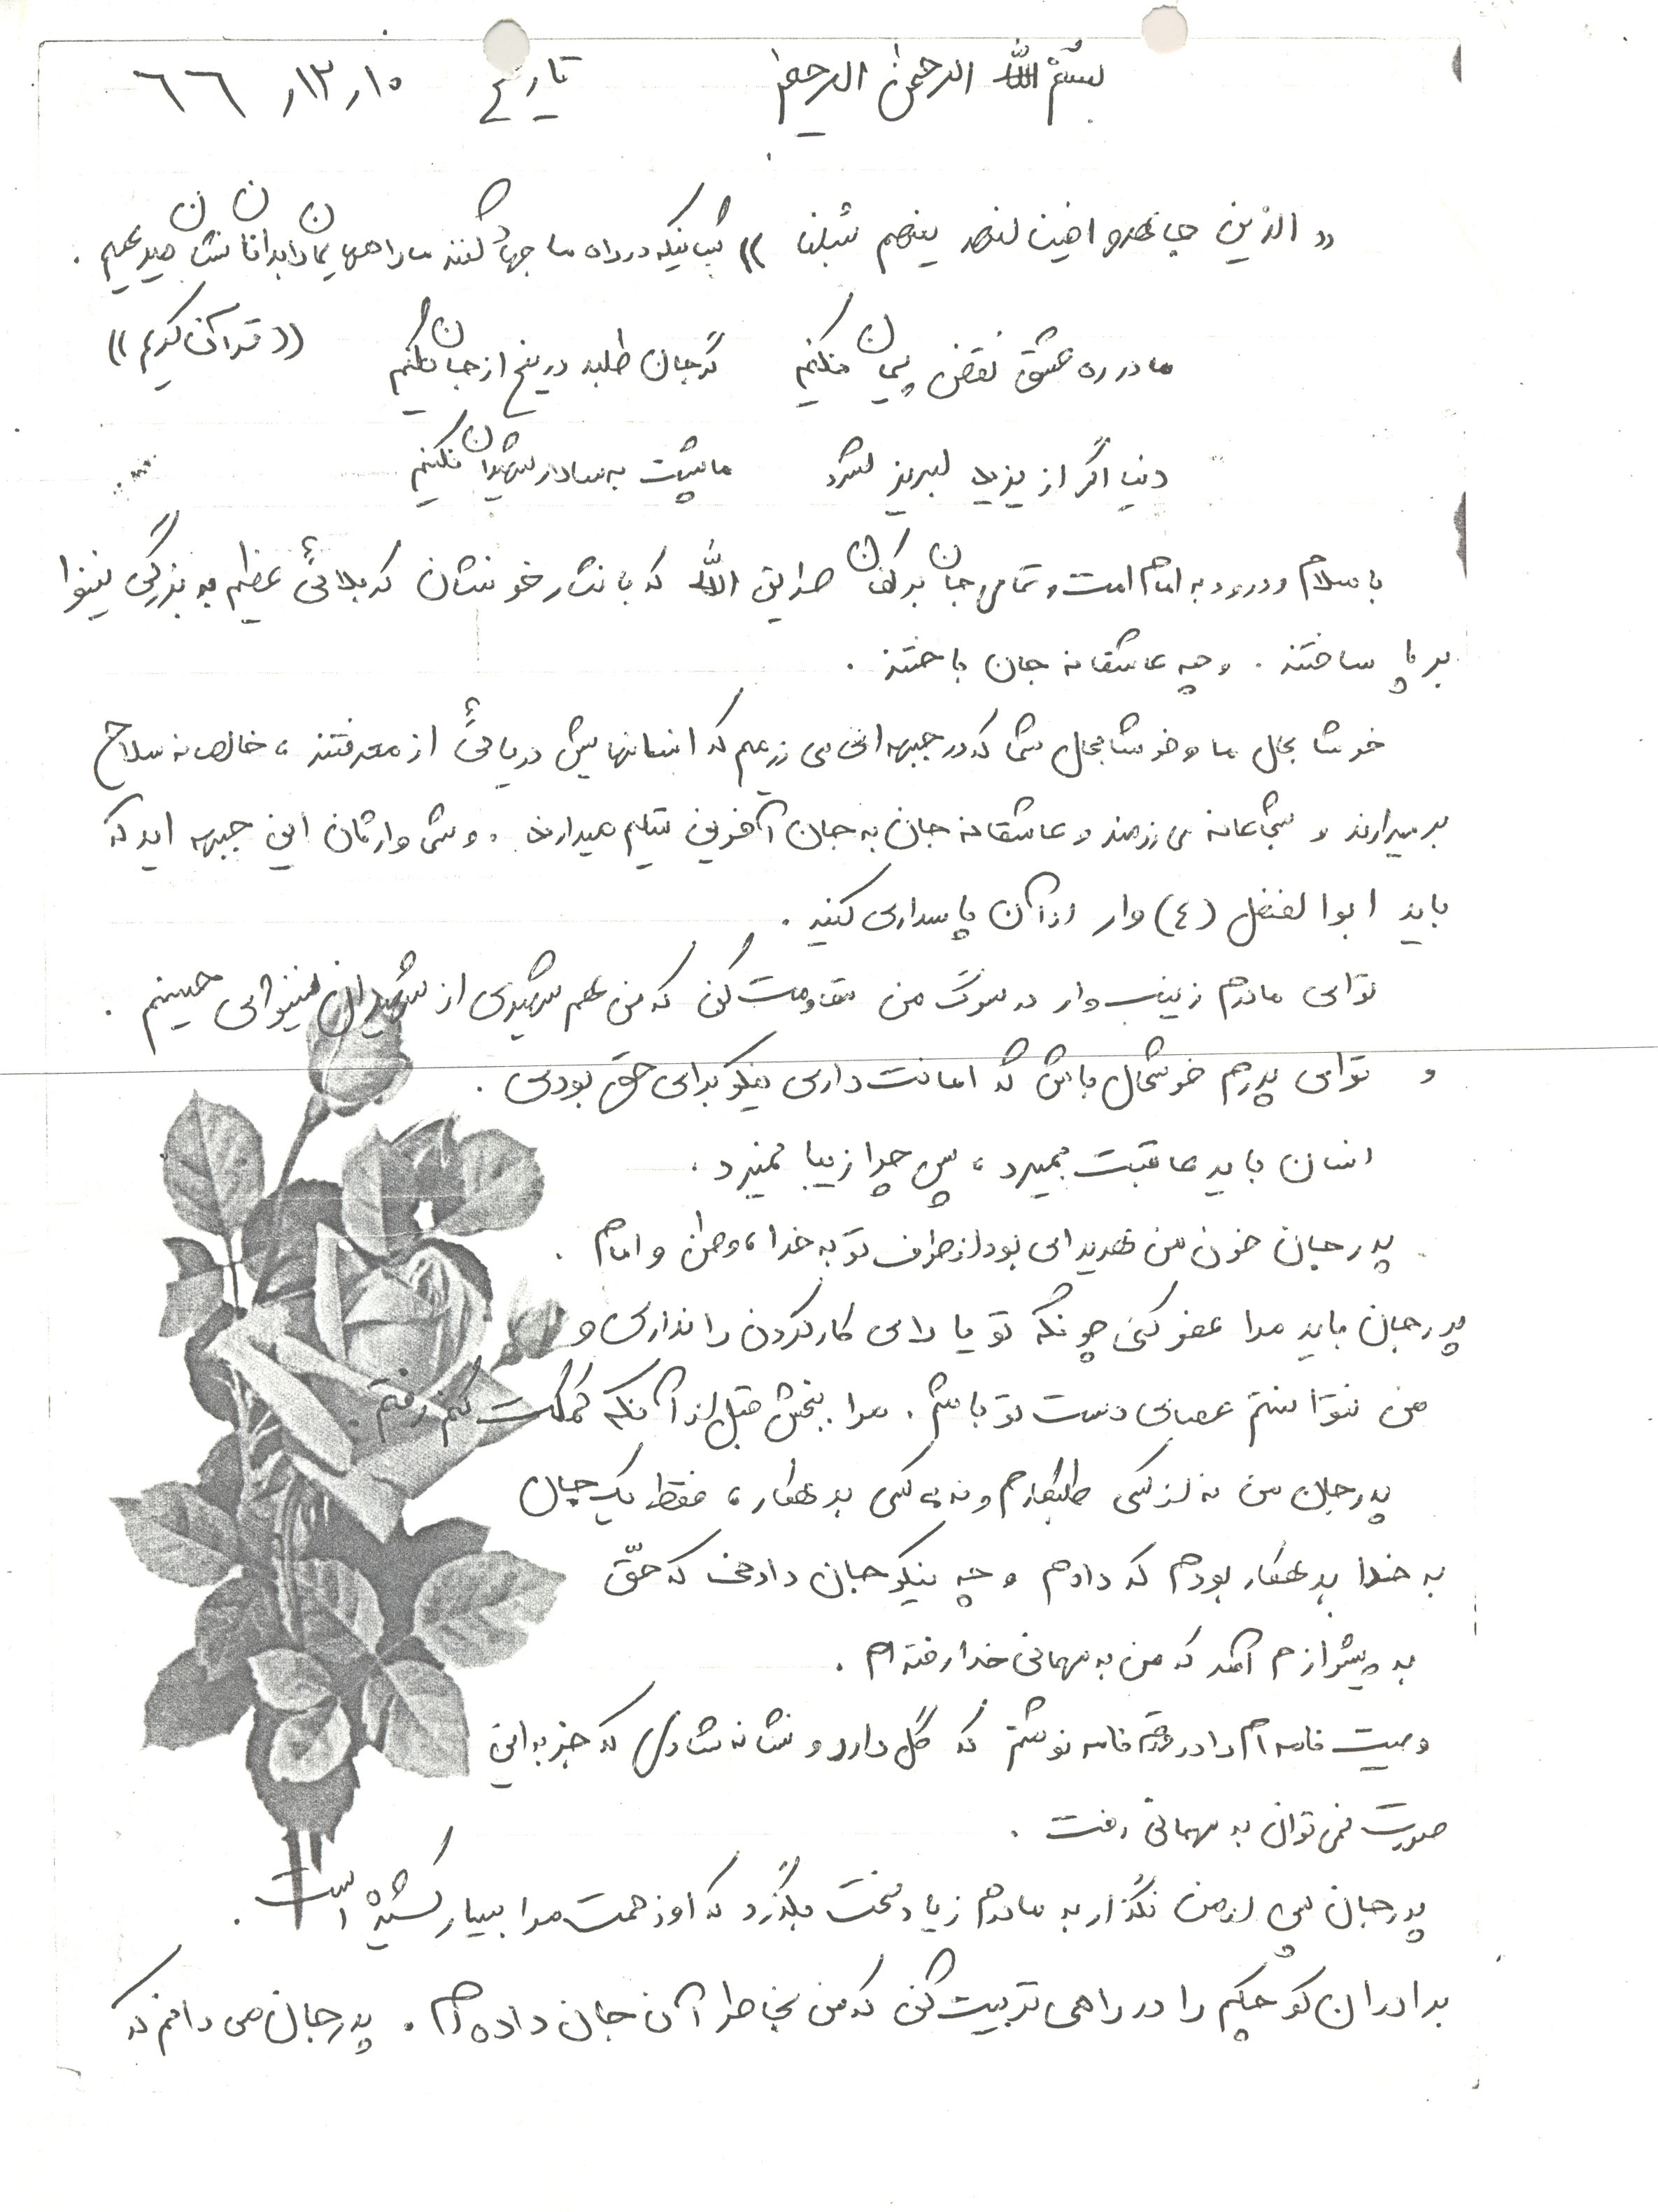 بسم الله الرحمن الرحیم تاریخ ۱۰ر۱۳ر ۶۶
«الذین جاهدوا فینا لنهدینهم سبلنا» کسانیکه در راه ما جهاد کنند ما راههایمان را بدانان نشان میدهیم.
ما در ره عشق نقض پیمان نکنیم گر جان طلبد دریغ از جان نکنیم ((قرآن کریم))
دنیا اگر از یزید لبریز شود ما پشت به سالار شهیدان نکنیم
با سلام و درود به امام امت و تمامی جان بر کفان صدایق الله که با نثار خونشان کربلائی عظیم به بزرگی نینوا
بر پا ساختند. و چه عاشقانه جان باختند.
خوشا بحال ما و خوشا بحال شما که در جبهه ای می رزمیم که انسانهایش دریائی از معرفتند، خالصانه سلاح
بر میدارند و شجاعانه می رزمند و عاشقانه جان به جان آفرین تسلیم میدارند. و شما وارثان این جبهه اید که
باید ابوالفضل (ع) وار از آن پاسداری کنید.
تو ای مادرم زینب وار در سوگ من مقاومت کن که من هم شهیدی از شهیدان نینوائی حسینم.
و تو ای پدرم خوشحال باش که امانت داری نیکو برای حق بودی.
انسان باید عاقبت بمیرد، پس چرا زیبا نمیرد.
پدر جان خون من هدیه ای بود از طرف تو به خدا، وطن و امام.
پدر جان باید مرا عفو کنی چونکه تو یارای کار کردن را نداری و
من نتوانستم عصای دست تو باشم. مرا ببخش قبل از آنکه کمکت کنم رفتم.
پدر جان من نه از کسی طلبکارم و نه به کسی بدهکار، فقط یک جان
به خدا بدهکار بودم که دادم و چه نیکو جان دادنی که حقّ
به پیشوازم آمد که من به مهمانی خدا رفته ام.
وصیت نامه ام را در نامه نوشتم که گل دارد و نشانه شادی که جز به این
صورت نمی توان به مهمانی رفت.
پدر جان پس از من نگذار به مادرم زیاد سخت بگذرد که او زحمت مرا بسیار کشیده است.
برادران کوچکم را در راهی تربیت کن که من بخاطر آن جان داده ام. پدر جان می دانم که